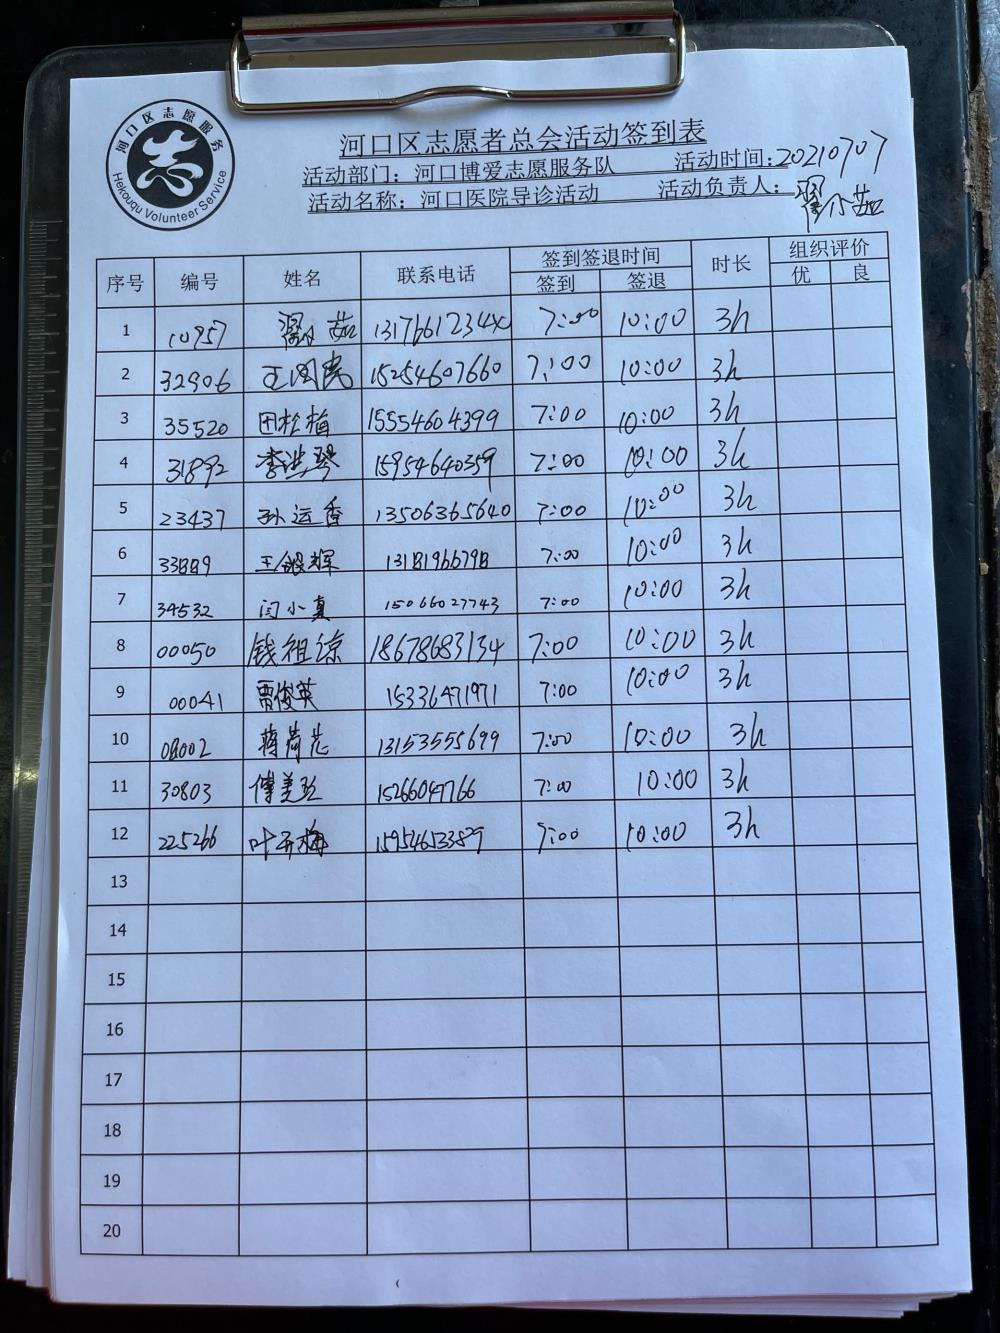 河口区志愿服务
志
Hekouqu Volunteer Service
河口区志愿者总会活动签到表
活动部门：河口博爱志愿服务队 活动时间：20210707
活动名称：河口医院导诊活动 活动负责人：翟小茹
序号 编号 姓名 联系电话 签到签退时间 时长 组织评价
签到 签退 优 良
1 10957 翟小茹 1317661234 7:00 10:00 3h
2 32906 王国亮 15254607660 7:00 10:00 3h
3 35520 田松梅 15554604399 7:00 10:00 3h
4 31892 李洪琴 15954640359 7:00 10:00 3h
5 23437 孙运香 13506365640 7:00 10:00 3h
6 33889 王银辉 13181966798 7:00 10:00 3h
7 34532 闫小真 15066027743 7:00 10:00 3h
8 00050 钱祖谅 18678683134 7:00 10:00 3h
9 00041 贾俊英 15336471971 7:00 10:00 3h
10 08002 蒋荷花 13153555699 7:00 10:00 3h
11 30803 傅美 15266047766 7:00 10:00 3h
12 225266 叶梅 15954653829 7:00 10:00 3h
13
14
15
16
17
18
19
20